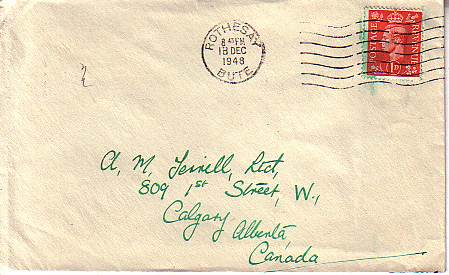 ROTHESAY
8 45 PM
18 DEC
1948
BUTE
POSTAGE REVENUE
1D
A. M. Terrill, Ltd,
809 1st Street, W.,
Calgary
Alberta,
Canada